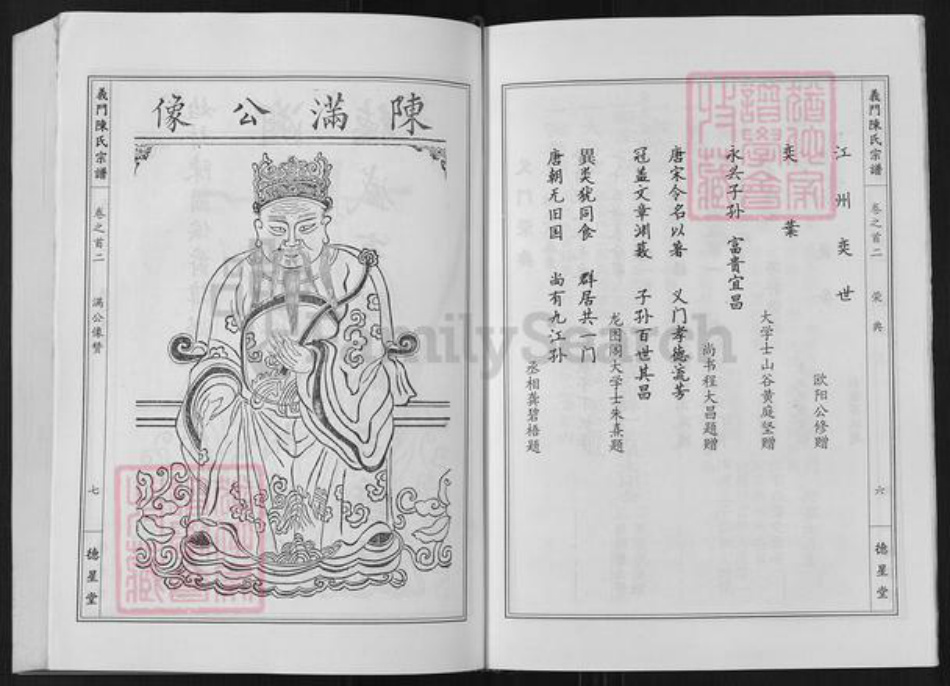 義門陳氏宗譜
卷之首二
荣典
六
德星堂
江州奕世
欧阳公修赠
奕葉
大学士山谷黄庭坚赠
永兴子孙 富貴宜昌
尚书程大昌题赠
唐宋令名以著 义门孝德流芳
冠盖文章渊薮 子孙百世其昌
龙图阁大学士朱熹题
異炎犹同食 群居共一门
唐朝无旧国 尚有九江孙
丞相龚碧梧题
義門陳氏宗譜
卷之首二
满公像赞
七
德星堂
陳滿公像
FamilySearch